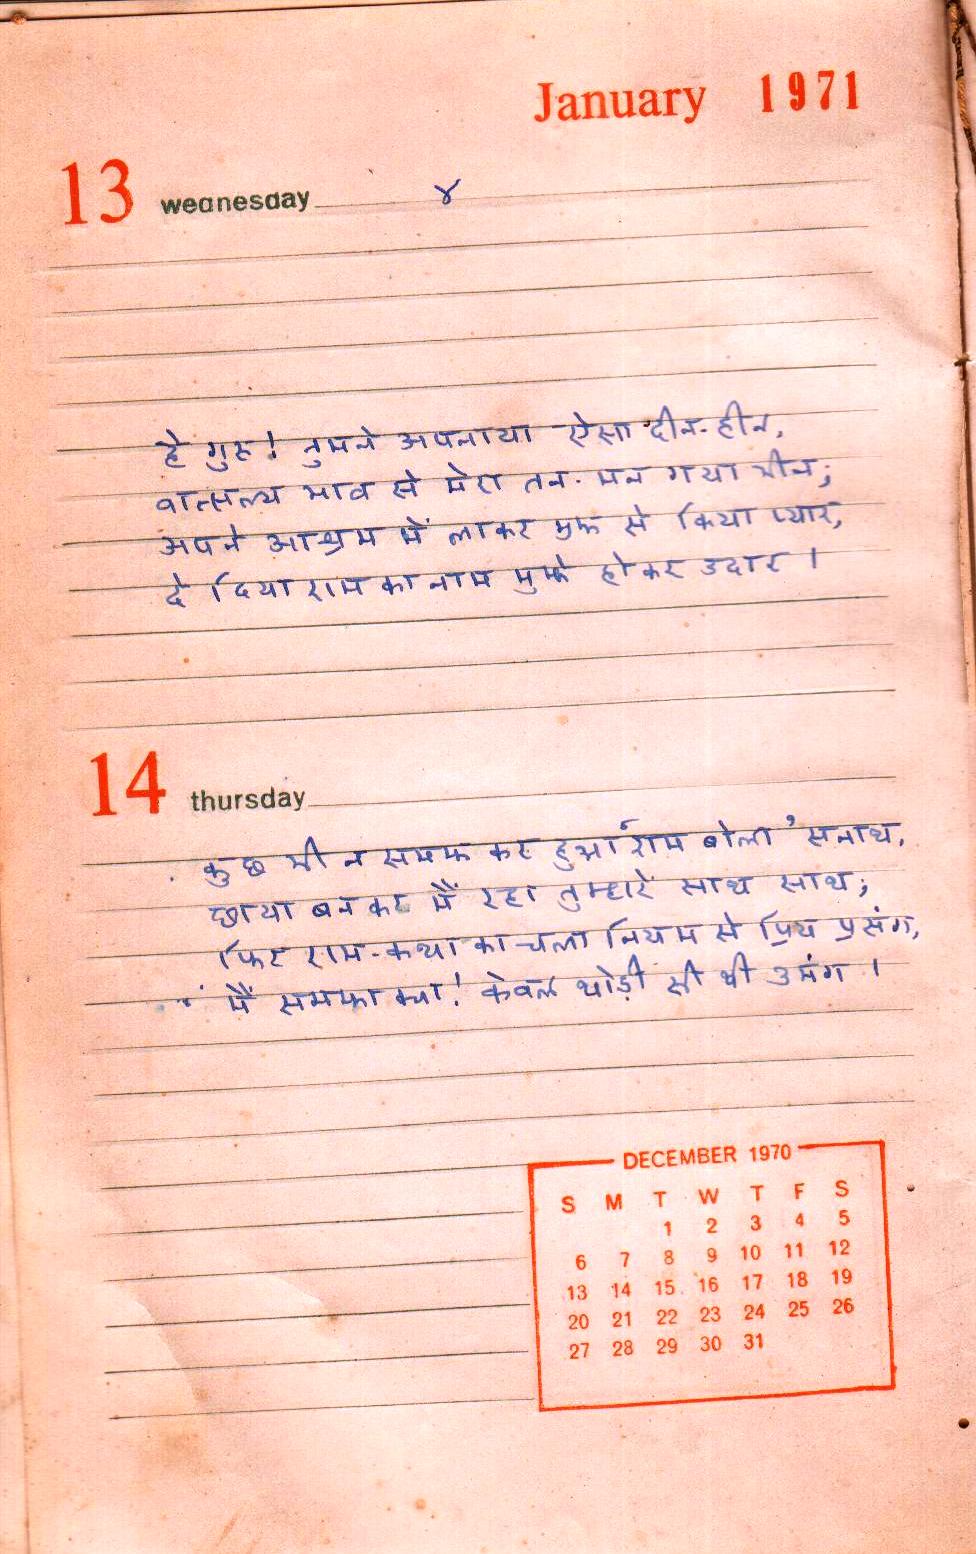 January 1971
13 wednesday ४
हे गुरु! तुमने अपनाया ऐसा दीन-हीन,
वात्सल्य भाव से मेरा तन-मन गया भीन;
अपने आश्रम में लाकर मुझ से किया प्यार,
दे दिया राम का नाम मुझे होकर उदार ।
14 thursday
कुछ भी न समझ कर हुआ 'राम बोला' सनाथ,
छाया बनकर मैं रहा तुम्हारे साथ साथ;
फिर राम-कथा का चला नियम से प्रिय प्रसंग,
मैं समझा क्या! केवल थोड़ी सी थी उमंग ।
DECEMBER 1970
S M T W T F S
1 2 3 4 5
6 7 8 9 10 11 12
13 14 15 16 17 18 19
20 21 22 23 24 25 26
27 28 29 30 31